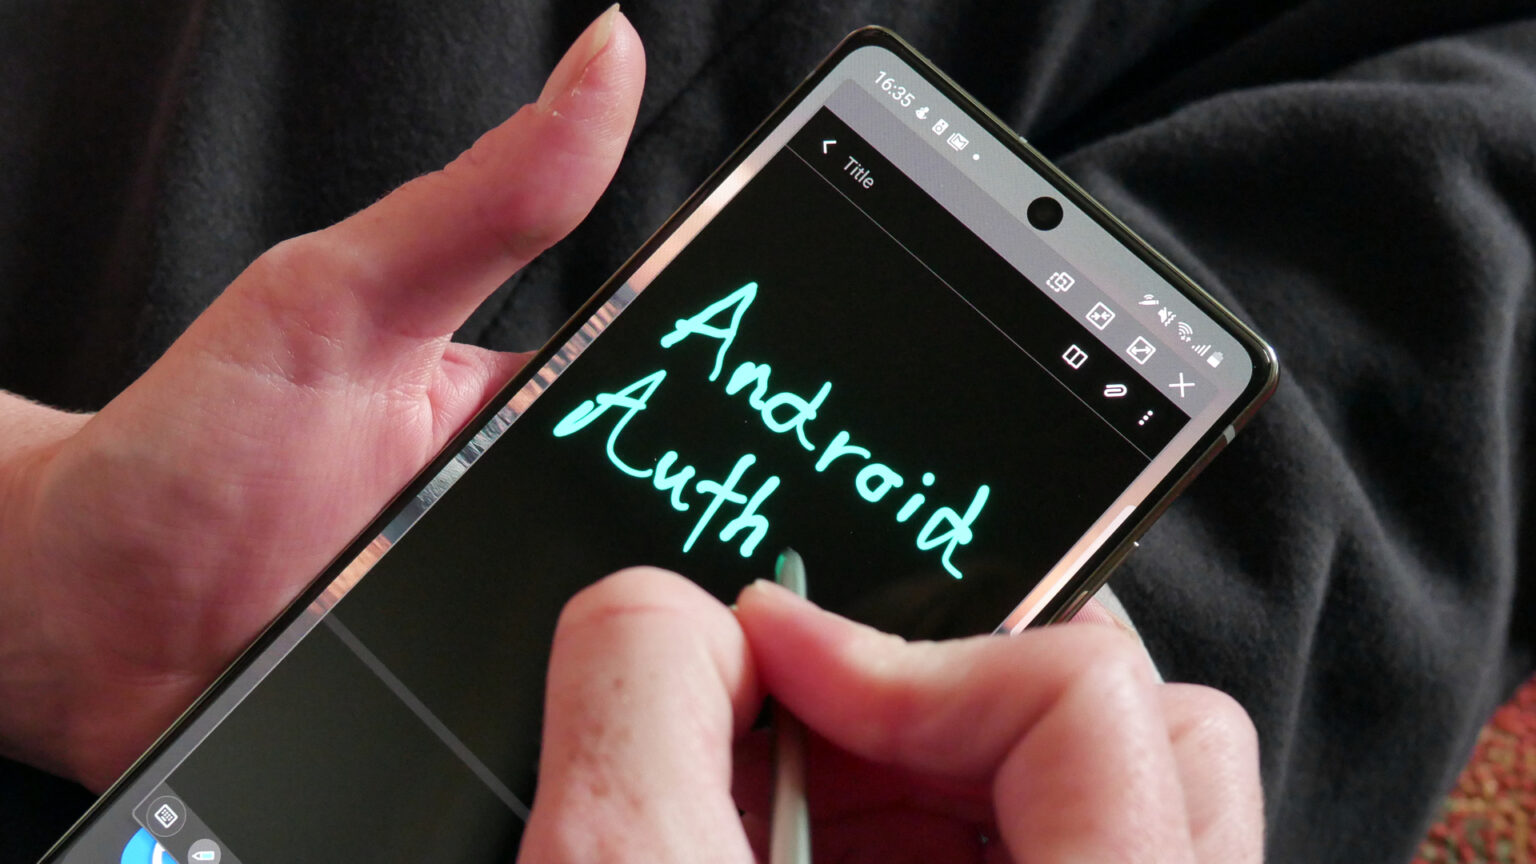 16:35
Title
Android
Auth